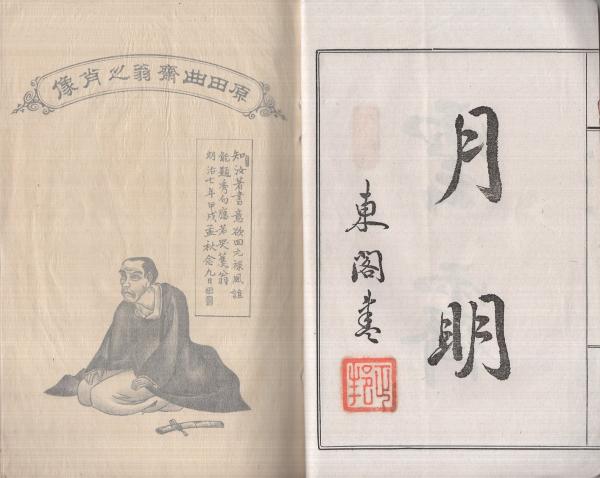 月明
東閣
原田曲齋翁之肖像
知汝著書意欲回元祿風誰
能題秀句應若哭蕉翁
明治七年甲戌孟秋念九日